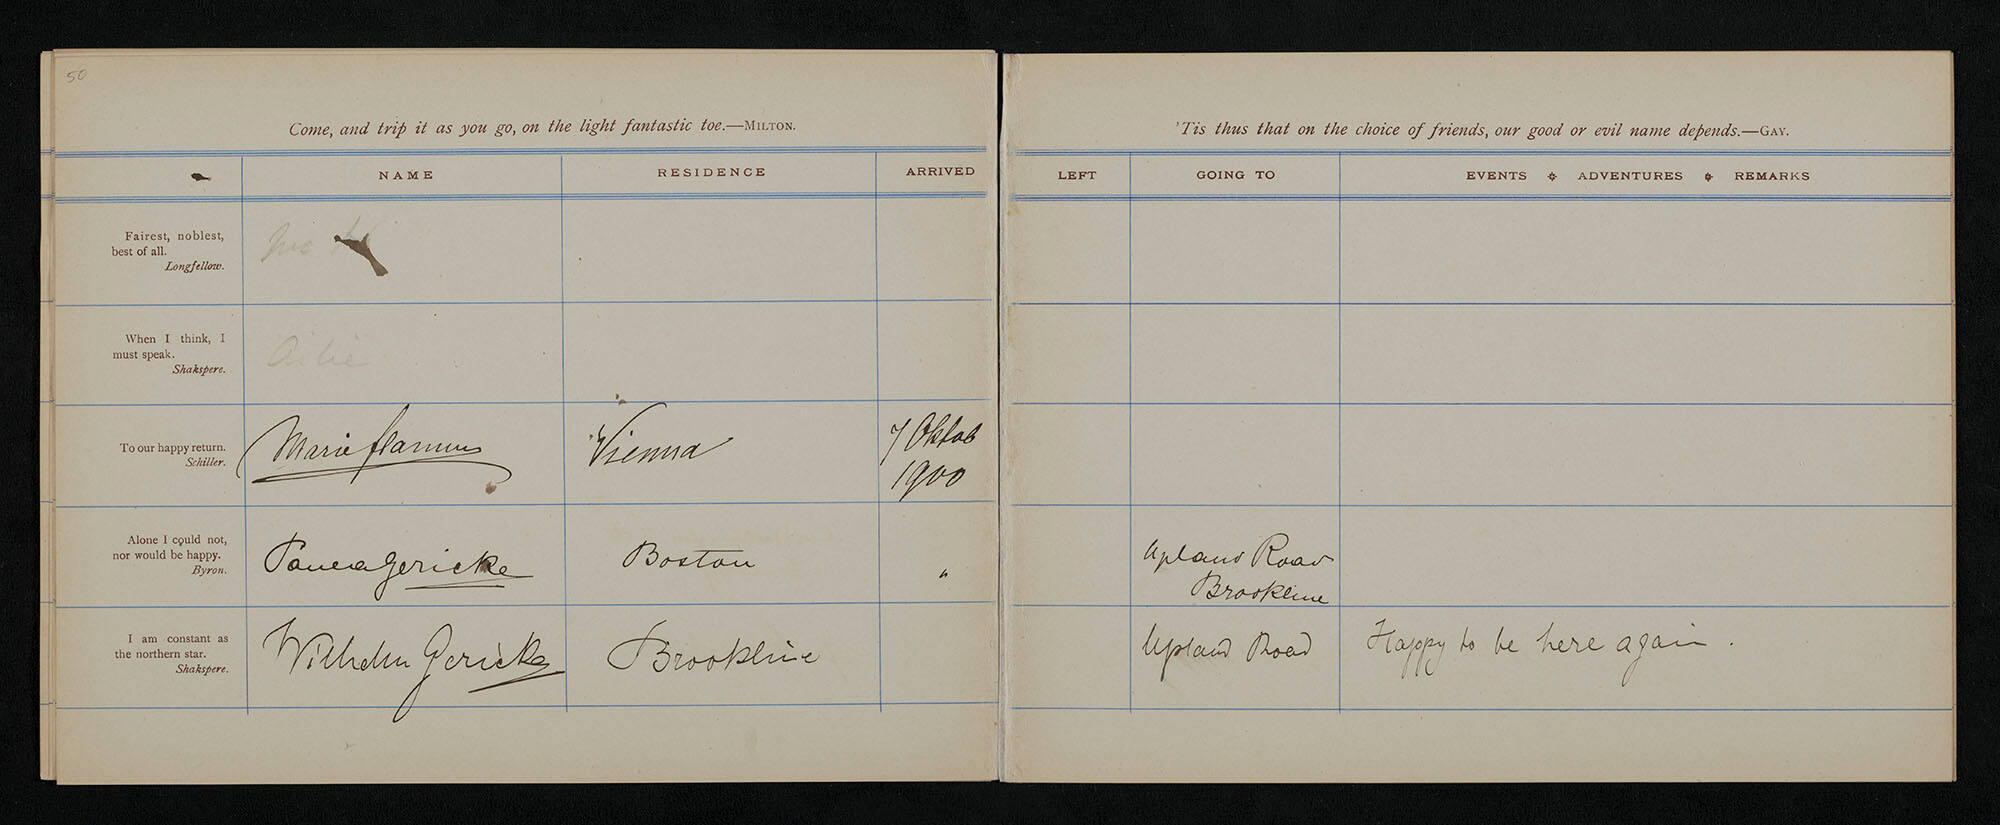 50
Come, and trip it as you go, on the light fantastic toe.—MILTON.
NAME RESIDENCE ARRIVED
Fairest, noblest,
best of all.
Longfellow.
When I think, I
must speak.
Shakspere.
To our happy return.
Schiller.
Marie Vienna 7 Oktob
1900
Alone I could not,
nor would be happy.
Byron.
Gericke Boston "
I am constant as
the northern star.
Shakspere.
Wilhelm Gericke Brookline
'Tis thus that on the choice of friends, our good or evil name depends.—GAY.
LEFT GOING TO EVENTS ADVENTURES REMARKS
Upland Road
Brookline
Upland Road Happy to be here again.